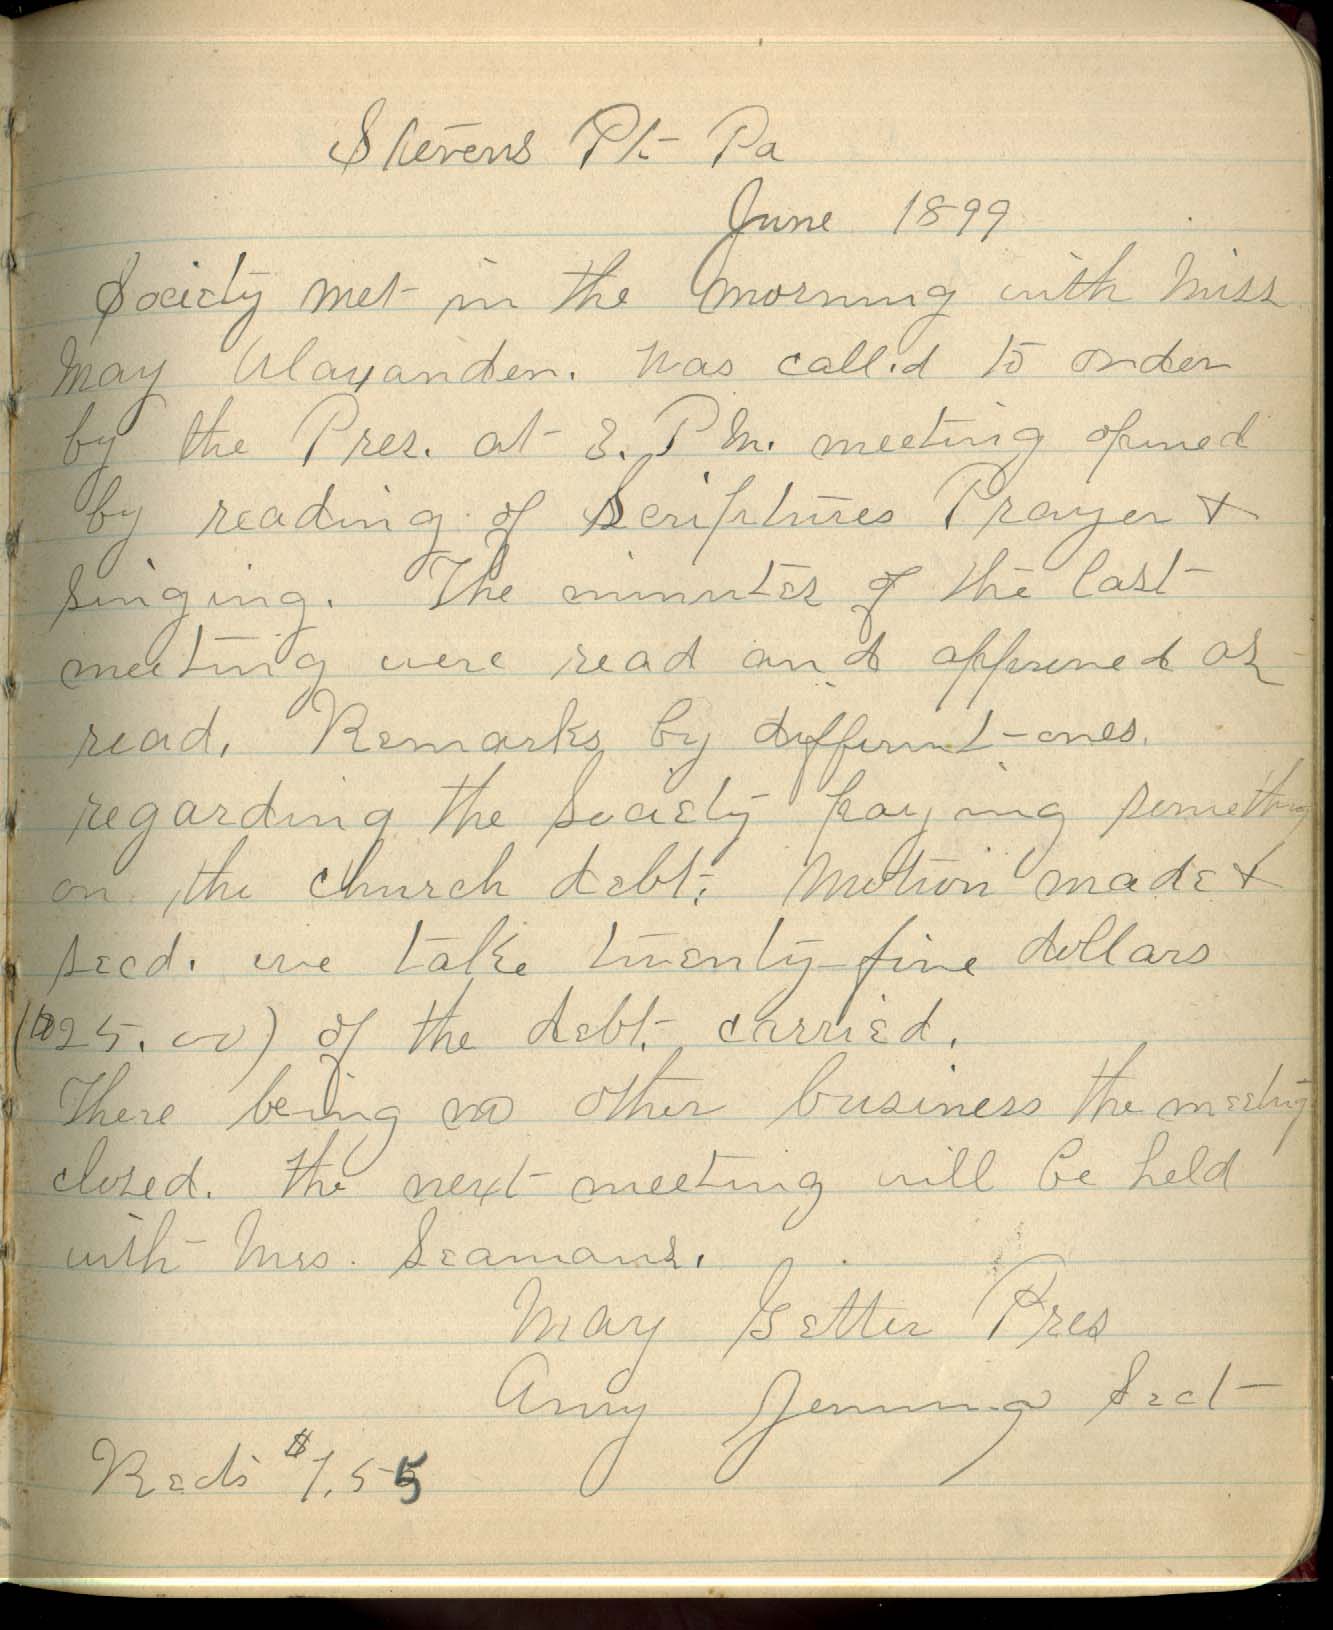 Stevens Pt Pa
June 1899
Society met in the morning with Miss
May Alaxander. was called to order
by the Pres. at 3. P M. meeting opened
by reading of Scriptures Prayer &
singing. The minutes of the last
meeting were read and approved as
read. Remarks by different ones.
regarding the Society paying something
on the church debt. Motion made &
secd. we take twenty-five dollars
($25.00) of the debt. carried.
There being no other business the meeting
closed. the next meeting will be held
with Mrs. Seamans.
May Getter Pres
Amy Jenning Sect
Recd $1.55